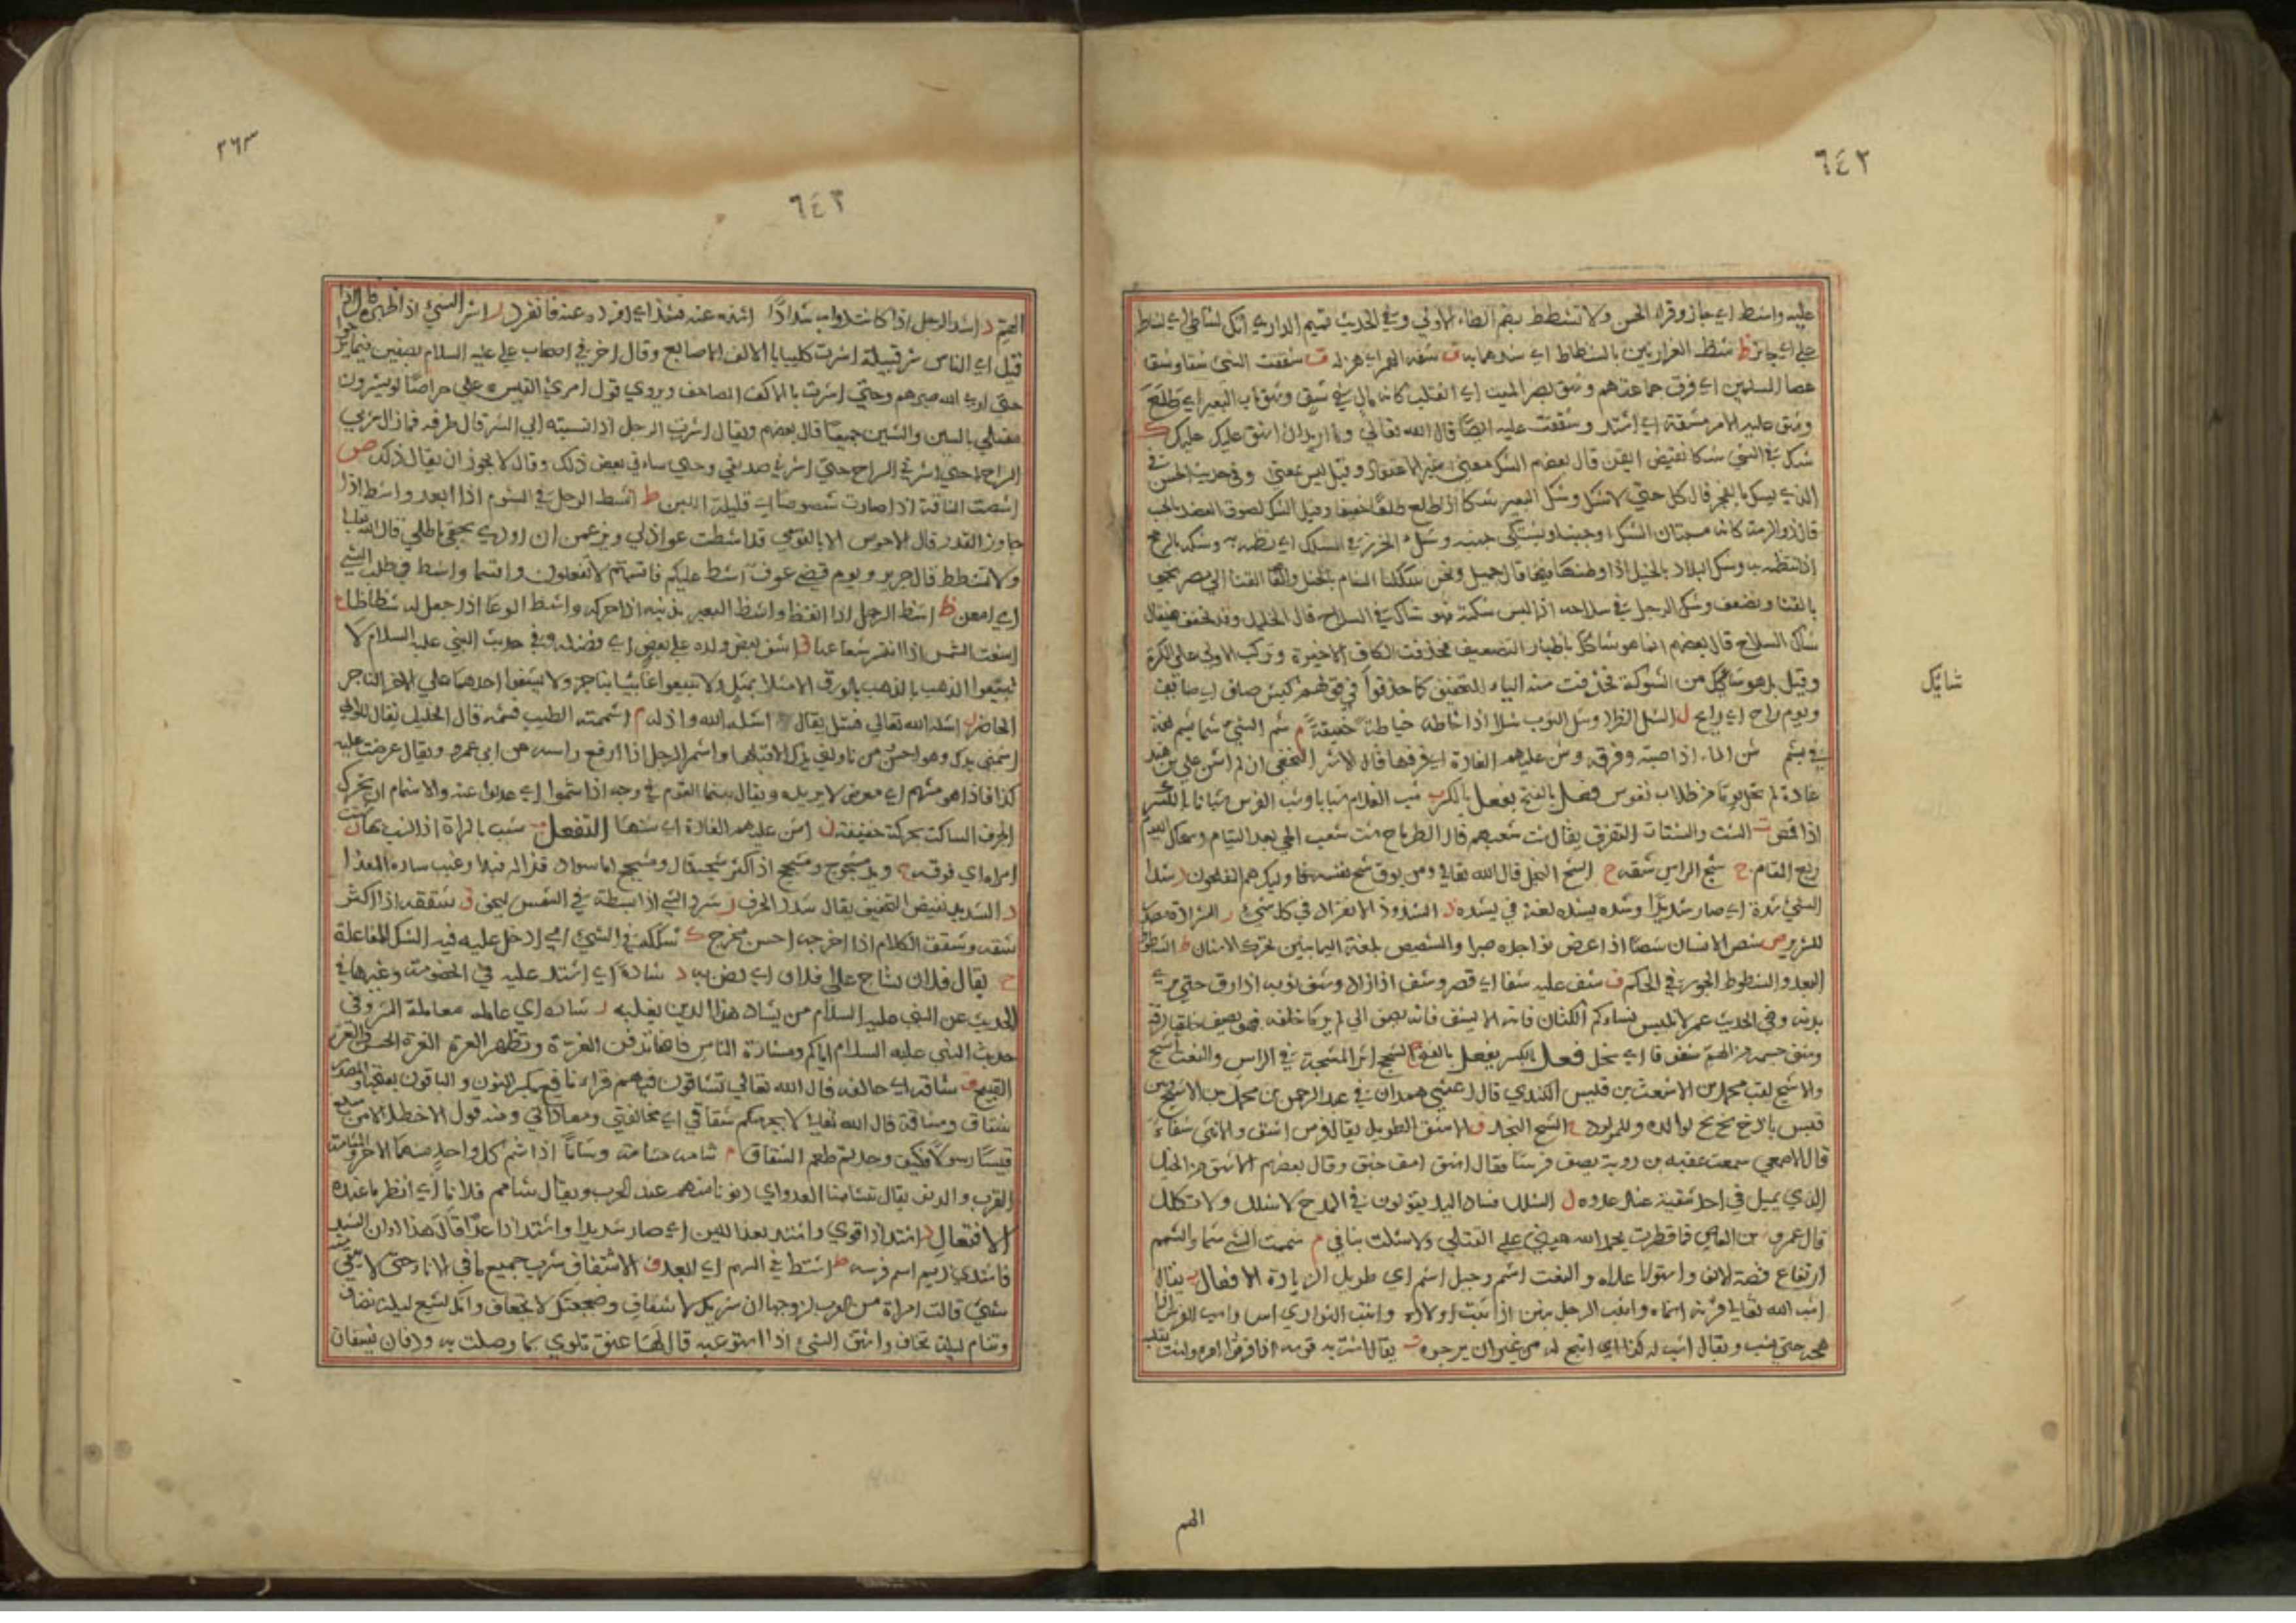 ٦٤٢
عليه واشط اي جاز وقراء الحسن ولا تشطط بضم الطاء الاولى وفي الحديث تميم الداري انك لشاطي اي لشاط
علي اي جائز ظ شظ الغرارتين بالشظاظ اي شدهما به ف شفه الهم اي هزله ق شققت الشيء شقا وشقا
عصا المسلمين اي فرق جماعتهم وشق بصر الميت اي انقلب كانه مال في شق وشق ناب البعير اي طلع
وشق عليه الامر مشقة اي اشتد وشققت عليه ايضا قال الله تعالى وما اريد ان اشق عليك ك
شك في الشيء شكا نقيض ايقن قال بعضهم الشك معنى غير الاعتقاد وقيل ليس بمعنى وفي حديث الحسن في
الذي يشك بالفجر قال كل حتى لا تشك وشك البعير شكا اذا ظلع ظلعا خفيفا وقيل الشك لصوق العضد بالجنب
قال ذو الرمة كانه مستبان الشك او جنب وشك الخرز في السلك اي نظمه وشكه بالرمح
اذا انتظمه به وشك البلاد بالخيل اذا وطئها قال جميل ونحن شككنا الشام بالخيل والقنا الى مصر
بالقنا ويضعف وشك الرجل في سلاحه اذا لبس شكته فهو شاك في السلاح قال الخليل وقد تخفف فيقال
شاك السلاح قال بعضهم انما هو شاكك باظهار التضعيف فحذفت الكاف الاخيرة وتركت الاولى على الكسرة
وقيل بل هو شائك من الشوكة فحذفت منه الياء للتخفيف كما حذفوا في قولهم كبش صاف اي صائف
شائك
ويوم راح اي رايح ل الشل الطرد وشل الثوب شلا اذا خاطه خياطة خفيفة م شم الشيء شما يشم لغة
في يشم شن الماء اذا صبه وفرقه وشن عليهم الغارة اي فرقها قال الاشتر النخعي ان لم اشن على بن هند
غارة لم تخل يوما من نهاب نفوس فعل بالفتح يفعل بالكسر ب شب الغلام شبابا وشب الفرس شبابا بالكسر
اذا قمص ت الشت والشتات التفرق يقال شت شعبهم قال الطرماح شت شعب الحي بعد التيام وشجاك اليوم
ربع المقام ج شج الراس شقه ح الشح البخل قال الله تعالى ومن يوق شح نفسه فاوليك هم المفلحون د شد
الشيء شدة اي صار شديدا وشده يشده لغة في يشده ذ الشذوذ الانفراد في كل شيء ر الشرارة مصدر
للشرير ص شص الانسان شصا اذا عض نواجذه صبرا والشصيص بلغة اليمانيين تحرك الاسنان ط الشطوط
البعد والشطوط الجور في الحكم ف شف عليه شفا اي قصر وشف اذا زاد وشف ثوبه اذا رق حتى يرى
بدنه وفي الحديث عمر لا تلبس نساءكم الكتان فانه الا يشف فانه يصف اي لم ير ما خلفه فهو يصف خلقها لرقته
وشف جسمه من الهم شفوفا اي نحل فعل بالكسر يفعل بالفتح ج الشجج اثر الشجة في الراس والنعت اشج
والاشج لقب محمد بن الاشعث بن قيس الكندي قال اعشى همدان في عبد الرحمن بن محمد بن الاشج بين
قيس باذخ بخ بخ لوالده وللمولود ح الشح البخل ق الاشق الطويل يقال فرس اشق والانثى شقاء
قال الاصمعي سمعت عقبه بن روبة يصف فرسا فقال اشق امق خبق وقال بعضهم الاشق من الخيل
الذي يميل في احد شقيه عند عدوه ل الشلل فساد اليد يقولون في المدح لا شلل ولا تكلل
قال عمرو بن العاص فما قطرت بحمد الله هيني على القتلى ولا شلت بناني م شممت الشيء شما والشمم
ارتفاع قصبة الانف واستواء اعلاه والنعت اشم وجبل اشم اي طويل الزيادة الافعال ب يقال
اشب الله تعالى قرنه انماه واشب الرجل بنين اذا شب اولاده واشب الثور اي اسن واشب الفرس اذا
هجه حتى يشب ويقال اشب له كذا اي اتيح له من غير ان يرجوه ت يقال اشت به قومه اذا فرقوا امره واشت بقلبه
الهم
٣٦٣
٦٤٣
الهم د اشد الرجل اذا كانت دوابه شدادا ذ اشذه عنه فشذ اي افرده عنه فانفرد ر اشر الشيء اذا اظهره قال اذا
قيل اي الناس شر قبيلة اشرت كليبا بالاكف الاصابع وقال اخر في اصحاب علي عليه السلام بصفين فما برحوا
حتى ارى الله صبرهم وحتى اشرت بالاكف المصاحف ويروي قول امرئ القيس علي حراصا لو يشرون
مقتلي بالسين والشين جميعا قال بعضهم ويقال اشررت الرجل اذا نسبته الى الشر قال طرفه فما زال شربي
الراح حتى اشرني الراح حتى اشرني صديقي وحتى ساءني بعض ذلك وقال لا يجوز ان يقال ذلك ص
اشصت الناقة اذا صارت شصوصا اي قليلة اللبن ط اشط الرجل في السوم اذا ابعد واشط اذا
جاوز القدر قال الاحوص الا يا لقومي قد اشطت عواذلي ويزعمن ان اودي بحقي باطلي قال الله تعالى
ولا تشطط قال جرير ويوم قضى عوف اشط عليكم فاقسمتم لا تفعلون واقسما واشط في طلب الشيء
اي امعن ظ اشظ الرجل اذا انعظ واشظ البعير بذنبه اذا حركه واشظ الوعا اذا جعل له شظاظا ع
اشعت الشمس اذا انتشر شعاعها ف اشف بعض ولده على بعض اي فضله وفي حديث النبي عليه السلام لا
تبيعوا الذهب بالذهب والورق بالورق الا مثلا بمثل ولا تبيعوا غايبا بناجز ولا تشفوا احدهما على الاخر الناجز
الحاضر ل اشله الله تعالى فشل يقال اشله الله واذله م اشممته الطيب فشمه قال الخليل يقال للوالي
اشممني يدك وهو احسن من ناولني يدك لاقبلها واشم الرجل اذا رفع راسه عن ابي عمرو ويقال عرضت عليه
كذا فاذا هو مشم اي معرض لا يريده ويقال بينما القوم في وجه اذا شموا اي عدلوا عنه والاشمام ان تحرك
الحرف الساكن بحركة خفيفة ن اشن عليهم الغارة اي شنها التفعل ب شبب بالمراة اذا انسب بها
امراه اي فوقه ج وتد مشجوج ومشجج اذا كثر شجه قال ومشجج اما سواد قذاله فبدا وغيب ساره المعزا
د التشديد نقيض التخفيف يقال شدد الحرف ر شرر الشيء اذا ابسطه في الشمس ليجف ق شققه اذا اكثر
شقه وشقق الكلام اذا اخرجه احسن مخرج ك شككه في الشيء اي ادخل عليه فيه الشك المفاعلة
ح يقال فلان يشاح على فلان اي يضن به د شاده اي اشتد عليه في الخصومة وغيرها في
الحديث عن النبي عليه السلام من يشاد هذا الدين يغلبه ر شاره اي عامله معاملة الشر وفي
حديث النبي عليه السلام اياكم ومشارة الناس فانها تدفن الغرة وتظهر العرة الغرة الحسن والعرة
القبيح ق شاقه اي خالفه قال الله تعالى تشاقون فيهم قراء نافع بكسر النون والباقون بفتحها والمصدر
شقاق ومشاقة قال الله تعالى لا يجرمنكم شقاقي اي مخالفتي ومعاداتي ومنه قول الاخطل الا من مبلغ
قيسا رسولا فكيف وجدتم طعم الشقاق م شامه مشامة وشماما اذا شم كل واحد منهما الاخر والمشامة
القرب والدنو يقال تشاممنا العدو اي دنونا منهم عند الحرب ويقال شامم فلانا اي انظر ما عنده
الافتعال د اشتد اذا قوي واشتد بعد اللين اي صار شديدا واشتد اذا عدا قال هذا اوان الشد
فاشتدي زيم اسم فرسه ط اشتط في السوم اي ابعد ف الاشتفاف شرب جميع ما في الاناء حتى لا يبقى منه
شيء قالت امراة من العرب لزوجها ان شربك لاشتفاف وضجعتك لانجعاف وانك لتشبع ليلة تضاف
وتنام ليلة تخاف واشتف الشيء اذا استوعبه قال لها عنق تلوي بما وصلت به ودفان يشتفان